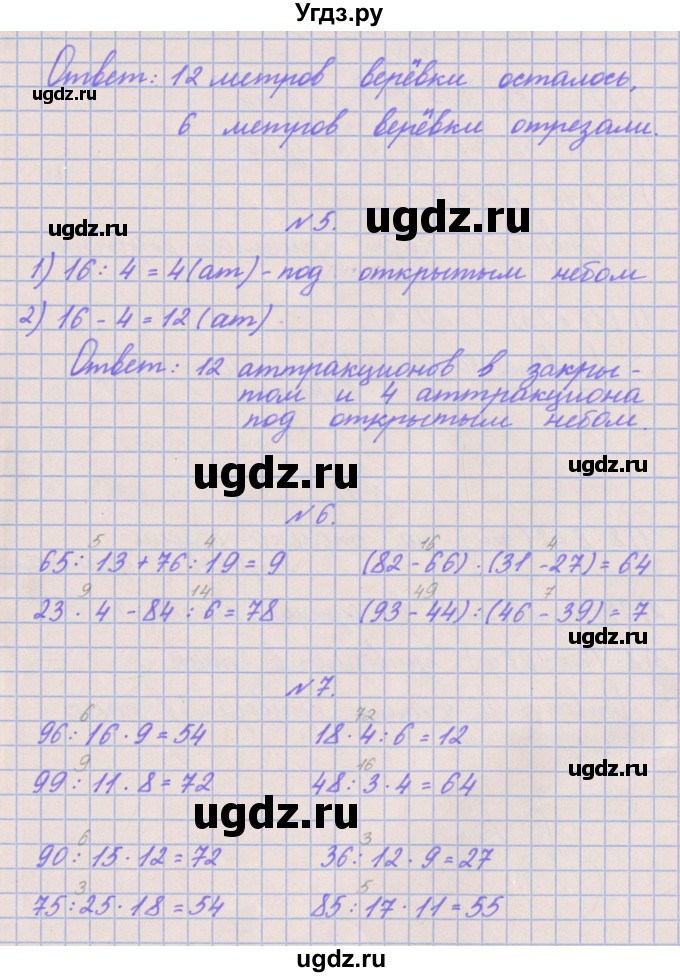 Угдз.ру
Ответ: 12 метров верёвки осталось,
ugdz.ru
6 метров верёвки отрезали.
ugdz.ru
ugdz.ru
№5.
1) 16 : 4 = 4 (ат) - под открытым небом
2) 16 - 4 = 12 (ат).
Ответ: 12 аттракционов в закры-
том и 4 аттракциона
под открытым небом.
ugdz.ru
ugdz.ru
№6.
5 4 16 4
65 : 13 + 76 : 19 = 9 (82 - 66) · (31 - 27) = 64
9 14 49 7
23 · 4 - 84 : 6 = 78 (93 - 44) : (46 - 39) = 7
ugdz.ru
№7.
6 72
96 : 16 · 9 = 54 18 · 4 : 6 = 12
9 16
ugdz.ru
99 : 11 · 8 = 72 48 : 3 · 4 = 64
ugdz.ru
6 3
90 : 15 · 12 = 72 36 : 12 · 9 = 27
3 5
75 : 25 · 18 = 54 85 : 17 · 11 = 55
ugdz.ru